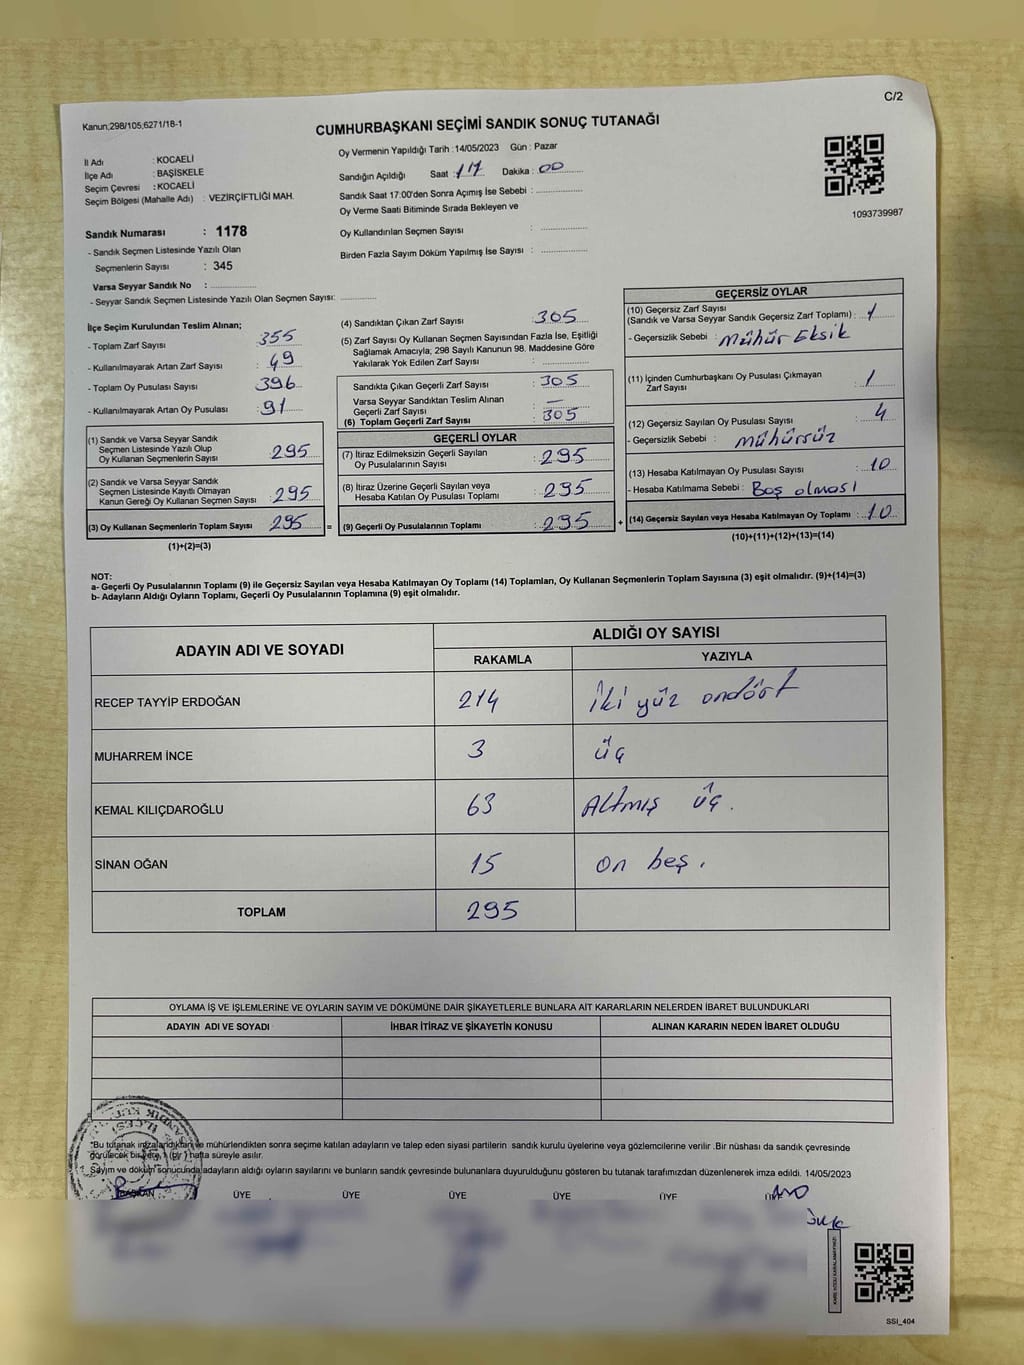 C/2
Kanun;298/105;6271/18-1
CUMHURBAŞKANI SEÇİMİ SANDIK SONUÇ TUTANAĞI
İl Adı : KOCAELİ
İlçe Adı : BAŞİSKELE
Seçim Çevresi : KOCAELİ
Seçim Bölgesi (Mahalle Adı) : VEZİRÇİFTLİĞİ MAH.
Sandık Numarası : 1178
- Sandık Seçmen Listesinde Yazılı Olan
Seçmenlerin Sayısı : 345
Varsa Seyyar Sandık No :
- Seyyar Sandık Seçmen Listesinde Yazılı Olan Seçmen Sayısı:
Oy Vermenin Yapıldığı Tarih :14/05/2023 Gün : Pazar
Sandığın Açıldığı Saat : 17 Dakika : 00
Sandık Saat 17:00'den Sonra Açımış İse Sebebi :
Oy Verme Saati Bitiminde Sırada Bekleyen ve
Oy Kullandırılan Seçmen Sayısı :
Birden Fazla Sayım Döküm Yapılmış İse Sayısı :
1093739987
İlçe Seçim Kurulundan Teslim Alınan;
- Toplam Zarf Sayısı : 355
- Kullanılmayarak Artan Zarf Sayısı : 49
- Toplam Oy Pusulası Sayısı : 396
- Kullanılmayarak Artan Oy Pusulası : 91
(1) Sandık ve Varsa Seyyar Sandık
Seçmen Listesinde Yazılı Olup
Oy Kullanan Seçmenlerin Sayısı : 295
(2) Sandık ve Varsa Seyyar Sandık
Seçmen Listesinde Kayıtlı Olmayan
Kanun Gereği Oy Kullanan Seçmen Sayısı : 295
(3) Oy Kullanan Seçmenlerin Toplam Sayısı : 295 =
(1)+(2)=(3)
(4) Sandıktan Çıkan Zarf Sayısı : 305
(5) Zarf Sayısı Oy Kullanan Seçmen Sayısından Fazla İse, Eşitliği
Sağlamak Amacıyla; 298 Sayılı Kanunun 98. Maddesine Göre
Yakılarak Yok Edilen Zarf Sayısı :
Sandıkta Çıkan Geçerli Zarf Sayısı : 305
Varsa Seyyar Sandıktan Teslim Alınan
Geçerli Zarf Sayısı : —
(6) Toplam Geçerli Zarf Sayısı : 305
GEÇERLİ OYLAR
(7) İtiraz Edilmeksizin Geçerli Sayılan
Oy Pusulalarının Sayısı : 295
(8) İtiraz Üzerine Geçerli Sayılan veya
Hesaba Katılan Oy Pusulası Toplamı : 295
(9) Geçerli Oy Pusulalarının Toplamı : 295 +
GEÇERSİZ OYLAR
(10) Geçersiz Zarf Sayısı
(Sandık ve Varsa Seyyar Sandık Geçersiz Zarf Toplamı) : 1
- Geçersizlik Sebebi : Mühür Eksik
(11) İçinden Cumhurbaşkanı Oy Pusulası Çıkmayan
Zarf Sayısı : 1
(12) Geçersiz Sayılan Oy Pusulası Sayısı : 4
- Geçersizlik Sebebi : mühürsüz
(13) Hesaba Katılmayan Oy Pusulası Sayısı : 10
- Hesaba Katılmama Sebebi : Boş olması
(14) Geçersiz Sayılan veya Hesaba Katılmayan Oy Toplamı : 10
(10)+(11)+(12)+(13)=(14)
NOT:
a- Geçerli Oy Pusulalarının Toplamı (9) ile Geçersiz Sayılan veya Hesaba Katılmayan Oy Toplamı (14) Toplamları, Oy Kullanan Seçmenlerin Toplam Sayısına (3) eşit olmalıdır. (9)+(14)=(3)
b- Adayların Aldığı Oyların Toplamı, Geçerli Oy Pusulalarının Toplamına (9) eşit olmalıdır.
ADAYIN ADI VE SOYADI
ALDIĞI OY SAYISI
RAKAMLA YAZIYLA
RECEP TAYYİP ERDOĞAN 214 İki yüz ondört
MUHARREM İNCE 3 üç
KEMAL KILIÇDAROĞLU 63 Altmış üç.
SİNAN OĞAN 15 on beş.
TOPLAM 295
OYLAMA İŞ VE İŞLEMLERİNE VE OYLARIN SAYIM VE DÖKÜMÜNE DAİR ŞİKAYETLERLE BUNLARA AİT KARARLARIN NELERDEN İBARET BULUNDUKLARI
ADAYIN ADI VE SOYADI İHBAR İTİRAZ VE ŞİKAYETİN KONUSU ALINAN KARARIN NEDEN İBARET OLDUĞU
*Bu tutanak imzalandıktan ve mühürlendikten sonra seçime katılan adayların ve talep eden siyasi partilerin sandık kurulu üyelerine veya gözlemcilerine verilir .Bir nüshası da sandık çevresinde
görülecek bir yere 1 (bir ) hafta süreyle asılır.
Sayım ve döküm sonucunda adayların aldığı oyların sayılarını ve bunların sandık çevresinde bulunanlara duyurulduğunu gösteren bu tutanak tarafımızdan düzenlenerek imza edildi. 14/05/2023
BAŞKAN ÜYE ÜYE ÜYE ÜYE ÜYE
SSI_404